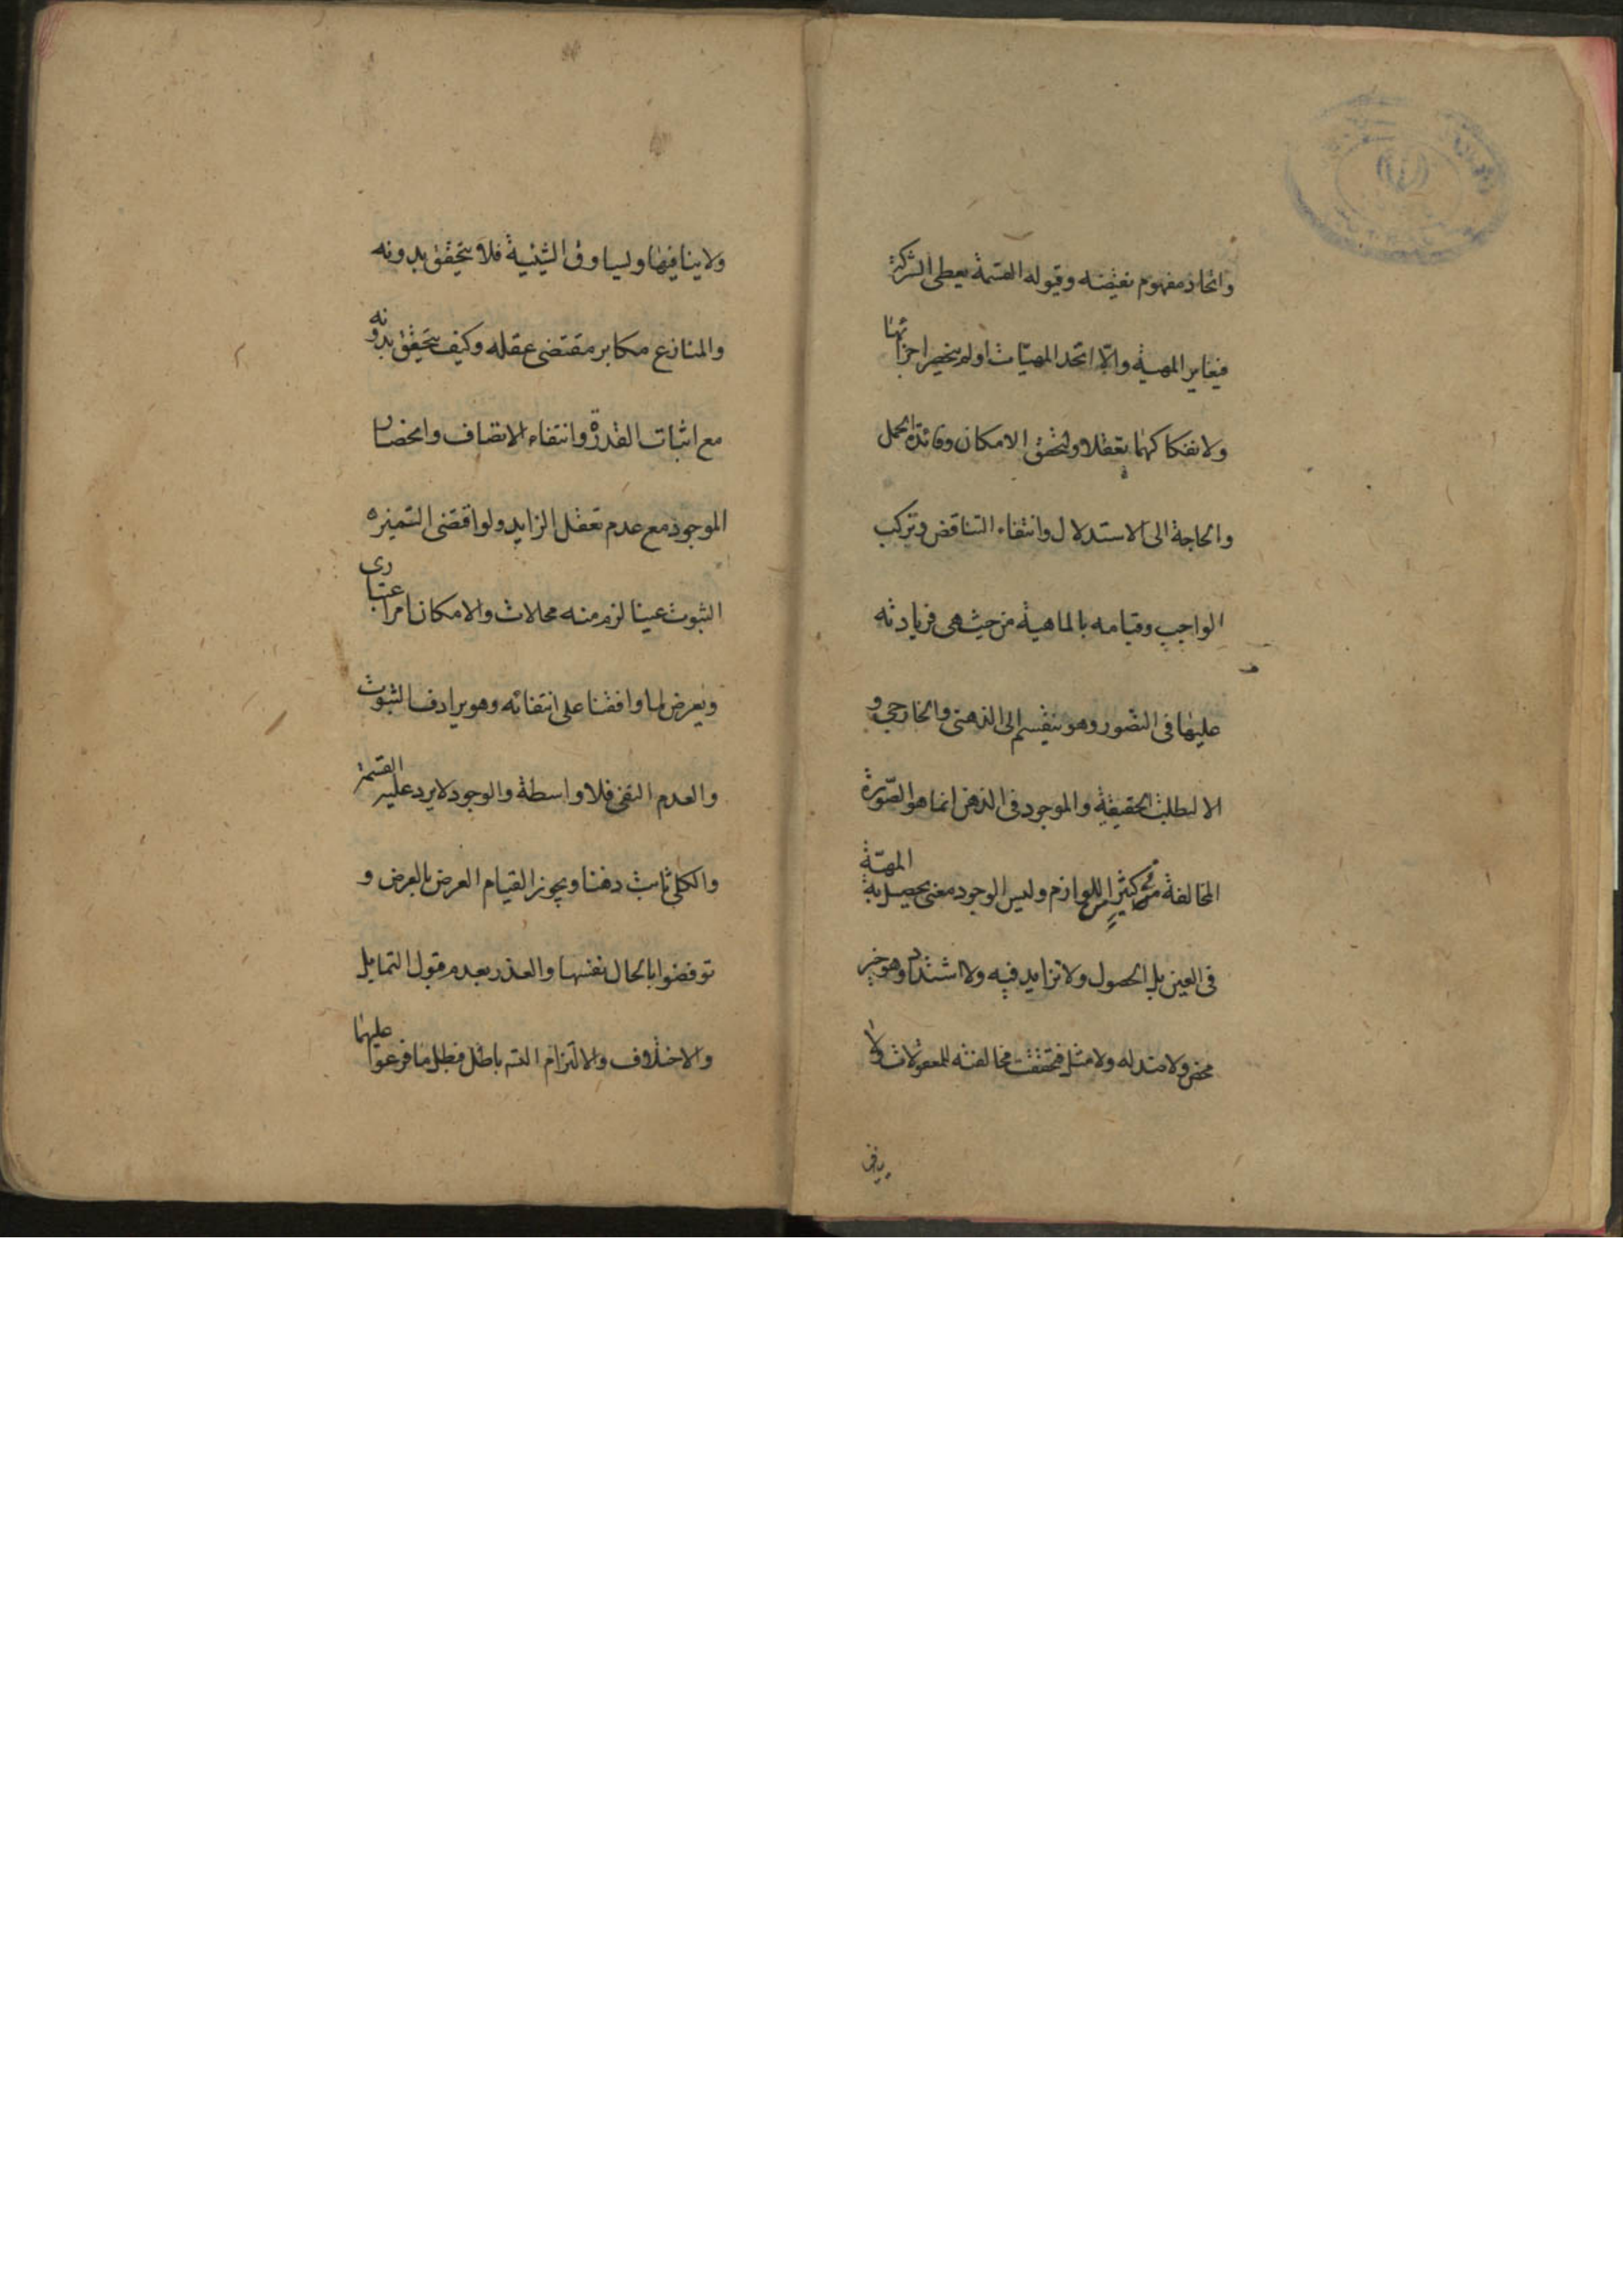 واتحاد مفهوم نقيضه وقبوله القسمة يعطى الشركة
فيغاير المهية والا اتحد المهيات او لم ينحصر اجزائها
ولانفكاكهما تعقلا ولتحقق الامكان وفائدة الحمل
والحاجة الى الاستدلال وانتفاء التناقض وتركب
الواجب وقيامه بالماهية من حيث هى فزيادته
عليها فى التصور وهو ينقسم الى الذهنى والخارجى و
الا لبطلت الحقيقة والموجود فى الذهن انما هو الصورة
المخالفة فى كثير من اللوازم وليس الوجود معنى يحصل به المهية
فى العين بل الحصول ولا تزايد فيه ولا اشتداد وهو خير
محض ولا ضد له ولا مثل فتحققت مخالفته للمعقولات ولا
ينافى
ولا ينافيها وليساوق الشيئية فلا يتحقق بدونه
والمنازع مكابر مقتضى عقله وكيف يتحقق بدونه
مع اثبات القدرة وانتفاء الاتصاف وانحصار
الموجود مع عدم تعقل الزايد ولو اقتضى التميز
الثبوت عينا لزم منه محالات والامكان امر اعتبارى
ويعرض لما وافقنا على انتفائه وهو يرادف الثبوت
والعدم النفى فلا واسطة والوجود لا يرد عليه القسمة
والكلى ثابت ذهنا ويجوز القيام العرض بالعرض و
نوقضوا بالحال نفسها والعذر بعدم قبول التمايل
والاختلاف والالتزام التسـ باطل فبطل ما فرعوا عليهما